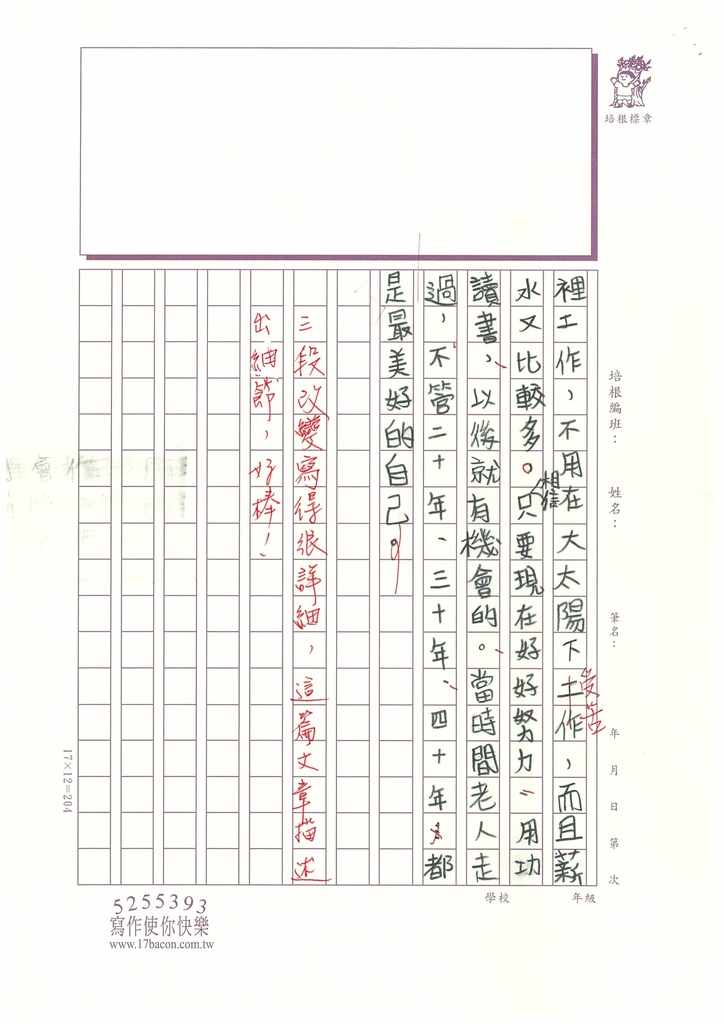 培根標章
培根編班：
姓名：
筆名：
年 月 日 第 次
學校
年級
裡工作，不用在大太陽下工作，而且薪
受苦
水又比較多。只要現在好好努力、用功
相信
讀書，以後就有機會的。當時間老人走
過，不管二十年、三十年、四十年，都
是最美好的自己。
三段改變寫得很詳細，這篇文章描述
出細節，好棒！
17×12=204
5255393
寫作使你快樂
www.17bacon.com.tw